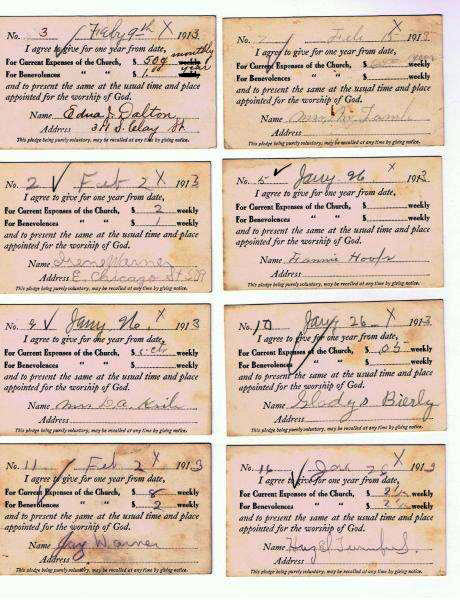 No. 3 Feby 9th X 1913
I agree to give for one year from date, monthly
For Current Expenses of the Church, $ .50¢ weekly
For Benevolences " " $ 1. weekly year
and to present the same at the usual time and place
appointed for the worship of God.
Name Edna J Dalton
Address 311 S. Clay St
This pledge being purely voluntary, may be recalled at any time by giving notice.
No. Feb X 1913
I agree to give for one year from date,
For Current Expenses of the Church, $ weekly
For Benevolences " " $ weekly
and to present the same at the usual time and place
appointed for the worship of God.
Name Lamb
Address
This pledge being purely voluntary, may be recalled at any time by giving notice.
No. 2 Feb 2 X 1913
I agree to give for one year from date,
For Current Expenses of the Church, $ 2 weekly
For Benevolences " " $ 1 weekly
and to present the same at the usual time and place
appointed for the worship of God.
Name Irene Warner
Address E. Chicago St
This pledge being purely voluntary, may be recalled at any time by giving notice.
No. 5 Jany 26 X 1913
I agree to give for one year from date,
For Current Expenses of the Church, $ weekly
For Benevolences " " $ weekly
and to present the same at the usual time and place
appointed for the worship of God.
Name Fannie Hoops
Address
This pledge being purely voluntary, may be recalled at any time by giving notice.
No. Jany 26. X 1913
I agree to give for one year from date,
For Current Expenses of the Church, $ weekly
For Benevolences " " $ weekly
and to present the same at the usual time and place
appointed for the worship of God.
Name Mrs
Address
This pledge being purely voluntary, may be recalled at any time by giving notice.
No. 10 Jany 26 X 1913
I agree to give for one year from date,
For Current Expenses of the Church, $ .05 weekly
For Benevolences " " $ weekly
and to present the same at the usual time and place
appointed for the worship of God.
Name Gladys Bierly
Address
This pledge being purely voluntary, may be recalled at any time by giving notice.
No. 11 Feb 2 X 1913
I agree to give for one year from date,
For Current Expenses of the Church, $ 8 weekly
For Benevolences " " $ 2 weekly
and to present the same at the usual time and place
appointed for the worship of God.
Name Jay Warner
Address
This pledge being purely voluntary, may be recalled at any time by giving notice.
No. 16 Jan X 1913
I agree to give for one year from date,
For Current Expenses of the Church, $ weekly
For Benevolences " " $ weekly
and to present the same at the usual time and place
appointed for the worship of God.
Name
Address
This pledge being purely voluntary, may be recalled at any time by giving notice.